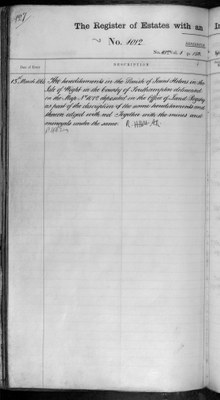 127
The Register of Estates with an
No. 1012.
DESCRIPTION
15 March 186
The hereditaments in the Parish of Saint Helens in the
Isle of Wight in the County of Southampton delineated
on the Map No 1012 deposited in the Office of Land Registry
as part of the description of the same hereditaments and
thereon edged with red Together with the mines and
minerals under the same